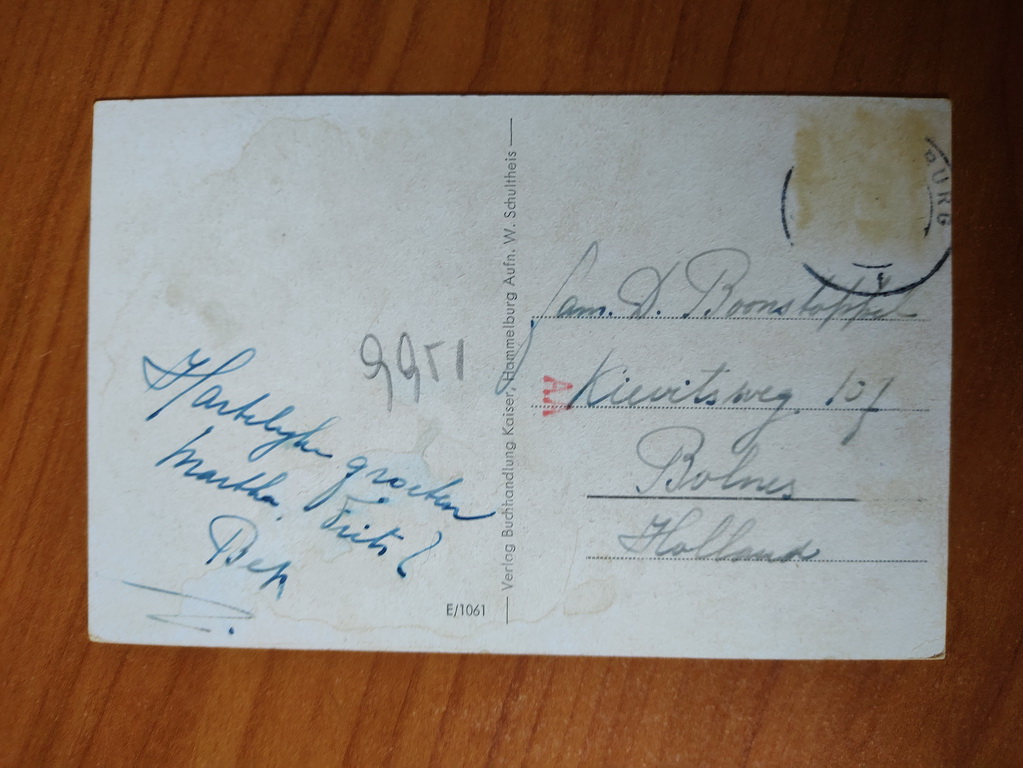 Hartelijke groeten
Martha, Frits &
Bep
E/1061
Verlag Buchhandlung Kaiser, Hammelburg Aufn. W. Schultheis
BURG
Fam. D. Boonstoppel
AA
Kievitsweg 107
Bolnes
Holland